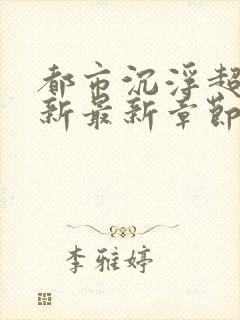 都市沉浮超
新最新章節
李雅婷